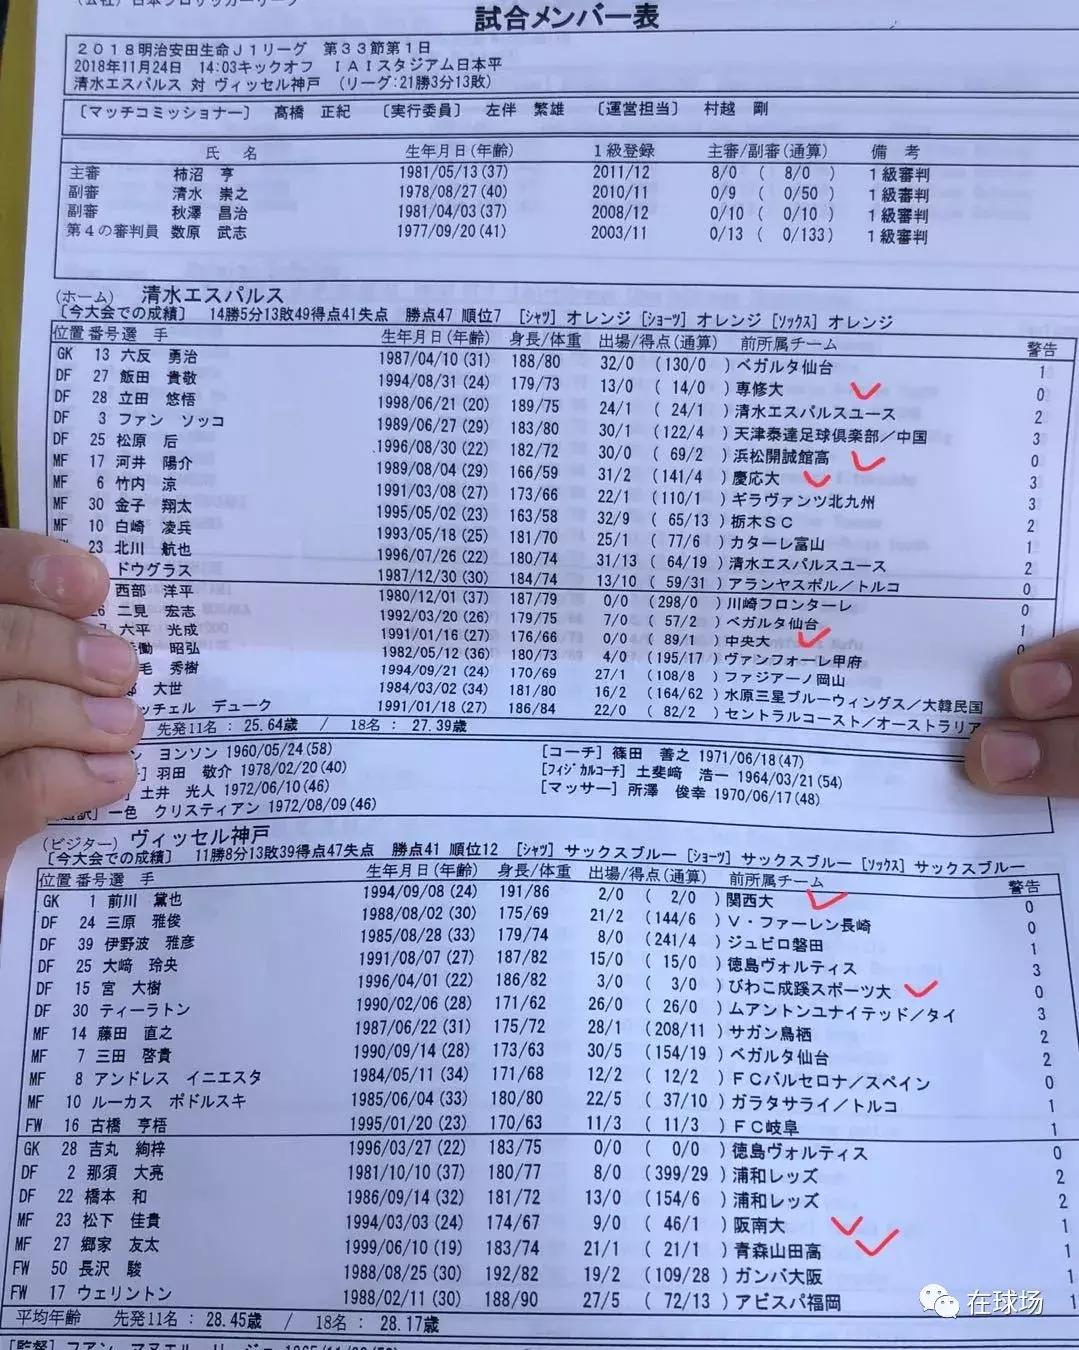 (公社)日本プロサッカーリーグ
試合メンバー表
2018明治安田生命J1リーグ 第33節第1日
2018年11月24日 14:03キックオフ IAIスタジアム日本平
清水エスパルス 対 ヴィッセル神戸 (リーグ:21勝3分13敗)
[マッチコミッショナー] 髙橋 正紀 [実行委員] 左伴 繁雄 [運営担当] 村越 剛
氏 名 生年月日(年齢) 1級登録 主審/副審(通算) 備 考
主審 柿沼 亨 1981/05/13(37) 2011/12 8/0 ( 8/0 ) 1級審判
副審 清水 崇之 1978/08/27(40) 2010/11 0/9 ( 0/50 ) 1級審判
副審 秋澤 昌治 1981/04/03(37) 2008/12 0/10 ( 0/10 ) 1級審判
第4の審判員 数原 武志 1977/09/20(41) 2003/11 0/13 ( 0/133) 1級審判
(ホーム) 清水エスパルス
[今大会での成績] 14勝5分13敗49得点41失点 勝点47 順位7 [シャツ] オレンジ [ショーツ] オレンジ [ソックス] オレンジ
位置 番号 選 手 生年月日(年齢) 身長/体重 出場/得点(通算) 前所属チーム 警告
GK 13 六反 勇治 1987/04/10(31) 188/80 32/0 (130/0 ) ベガルタ仙台 1
DF 27 飯田 貴敬 1994/08/31(24) 179/73 13/0 ( 14/0 ) 専修大 0
DF 28 立田 悠悟 1998/06/21(20) 189/75 24/1 ( 24/1 ) 清水エスパルスユース 2
DF 3 ファン ソッコ 1989/06/27(29) 183/80 30/1 (122/4 ) 天津泰達足球倶楽部/中国 3
DF 25 松原 后 1996/08/30(22) 182/72 30/0 ( 69/2 ) 浜松開誠館高 0
MF 17 河井 陽介 1989/08/04(29) 166/59 31/2 (141/4 ) 慶応大 3
MF 6 竹内 涼 1991/03/08(27) 173/66 22/1 (110/1 ) ギラヴァンツ北九州 3
MF 30 金子 翔太 1995/05/02(23) 163/58 32/9 ( 65/13 ) 栃木SC 2
MF 10 白崎 凌兵 1993/05/18(25) 181/70 25/1 ( 77/6 ) カターレ富山 1
23 北川 航也 1996/07/26(22) 180/74 31/13 ( 64/19 ) 清水エスパルスユース 2
ドウグラス 1987/12/30(30) 184/74 13/10 ( 59/31 ) アランヤスポル/トルコ 0
西部 洋平 1980/12/01(37) 187/79 0/0 (298/0 ) 川崎フロンターレ 0
26 二見 宏志 1992/03/20(26) 179/75 7/0 ( 57/2 ) ベガルタ仙台 1
六平 光成 1991/01/16(27) 176/66 0/0 ( 89/1 ) 中央大 0
昭弘 1982/05/12(36) 180/73 4/0 (195/17 ) ヴァンフォーレ甲府
毛 秀樹 1994/09/21(24) 170/69 27/1 (108/8 ) ファジアーノ岡山
大世 1984/03/02(34) 181/80 16/2 (164/62 ) 水原三星ブルーウィングス/大韓民国
ッチェル デューク 1991/01/18(27) 186/84 22/0 ( 82/2 ) セントラルコースト/オーストラリア
先発11名 : 25.64歳 / 18名 : 27.39歳
ン ヨンソン 1960/05/24(58) [コーチ] 篠田 善之 1971/06/18(47)
羽田 敬介 1978/02/20(40) [フィジカルコーチ] 土斐崎 浩一 1964/03/21(54)
土井 光人 1972/06/10(46) [マッサー] 所澤 俊幸 1970/06/17(48)
[通訳] 一色 クリスティアン 1972/08/09(46)
(ビジター) ヴィッセル神戸
[今大会での成績] 11勝8分13敗39得点47失点 勝点41 順位12 [シャツ] サックスブルー [ショーツ] サックスブルー [ソックス] サックスブルー
位置 番号 選 手 生年月日(年齢) 身長/体重 出場/得点(通算) 前所属チーム 警告
GK 1 前川 黛也 1994/09/08(24) 191/86 2/0 ( 2/0 ) 関西大 0
DF 24 三原 雅俊 1988/08/02(30) 175/69 21/2 (144/6 ) V・ファーレン長崎 0
DF 39 伊野波 雅彦 1985/08/28(33) 179/74 8/0 (241/4 ) ジュビロ磐田 1
DF 25 大﨑 玲央 1991/08/07(27) 187/82 15/0 ( 15/0 ) 徳島ヴォルティス 3
DF 15 宮 大樹 1996/04/01(22) 186/82 3/0 ( 3/0 ) びわこ成蹊スポーツ大 0
DF 30 ティーラトン 1990/02/06(28) 171/62 26/0 ( 26/0 ) ムアントンユナイテッド/タイ 3
MF 14 藤田 直之 1987/06/22(31) 175/72 28/1 (208/11 ) サガン鳥栖 2
MF 7 三田 啓貴 1990/09/14(28) 173/63 30/5 (154/19 ) ベガルタ仙台 2
MF 8 アンドレス イニエスタ 1984/05/11(34) 171/68 12/2 ( 12/2 ) FCバルセロナ/スペイン 0
MF 10 ルーカス ポドルスキ 1985/06/04(33) 180/80 22/5 ( 37/10 ) ガラタサライ/トルコ 1
FW 16 古橋 亨梧 1995/01/20(23) 170/63 11/3 ( 11/3 ) FC岐阜 1
GK 28 吉丸 絢梓 1996/03/27(22) 183/75 0/0 ( 0/0 ) 徳島ヴォルティス 0
DF 2 那須 大亮 1981/10/10(37) 180/77 8/0 (399/29 ) 浦和レッズ 2
DF 22 橋本 和 1986/09/14(32) 181/72 13/0 (154/6 ) 浦和レッズ 2
MF 23 松下 佳貴 1994/03/03(24) 174/67 9/0 ( 46/1 ) 阪南大 1
MF 27 郷家 友太 1999/06/10(19) 183/74 21/1 ( 21/1 ) 青森山田高 1
FW 50 長沢 駿 1988/08/25(30) 192/82 19/2 (109/28 ) ガンバ大阪 1
FW 17 ウェリントン 1988/02/11(30) 188/90 27/5 ( 72/13 ) アビスパ福岡 1
平均年齢 先発11名 : 28.45歳 / 18名 : 28.17歳
[監督] フアン マヌエル リージョ
在球场